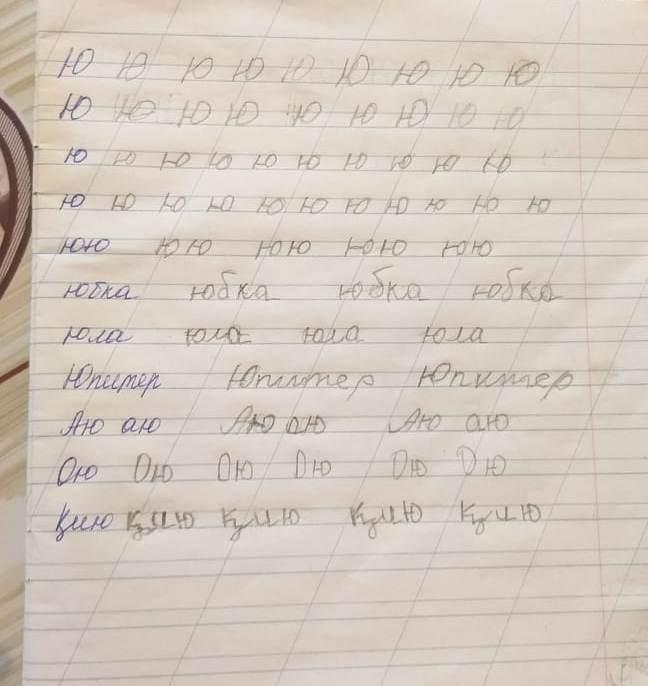 Ю Ю Ю Ю Ю Ю Ю Ю Ю
Ю Ю Ю Ю Ю Ю Ю Ю Ю
ю ю ю ю ю ю ю ю ю ю
ю ю ю ю ю ю ю ю ю ю ю
юю юю юю юю юю
юбка юбка юбка юбка
юла юла юла юла
Юпитер Юпитер Юпитер
Аю аю Аю аю Аю аю
Ою Ою Ою Ою Ою Ою